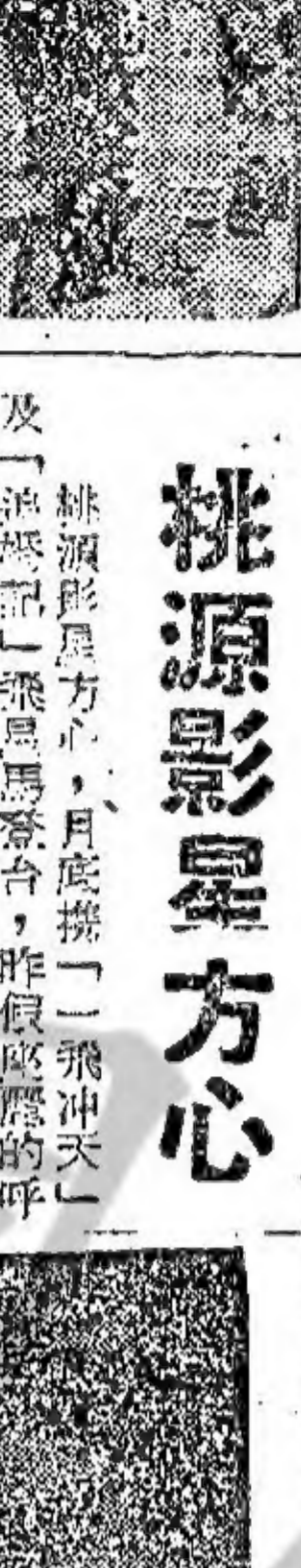 桃源影星方心
桃源影星方心，月底携「一飛冲天」
及「追婚記」飛星馬登台，昨假座麗的呼